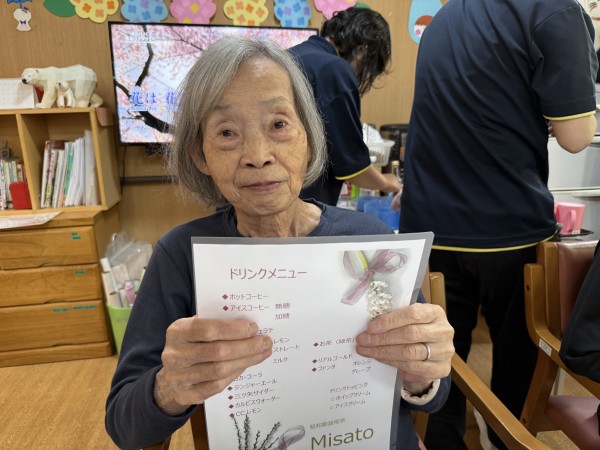 花は 花
ドリンクメニュー
◆ホットコーヒー
◆アイスコーヒー 無糖
加糖
レモン
ストレート
ミルク
◆お茶(緑茶
コカ・コーラ
ジンジャーエール
◆三ツ矢サイダー
◆カルピスウォーター
◆CCレモン
◆リアルゴールド
◆ファンタ オレンジ
グレープ
ドリンクトッピング
○ホイップクリーム
○アイスクリーム
昭和歌謡喫茶
Misato